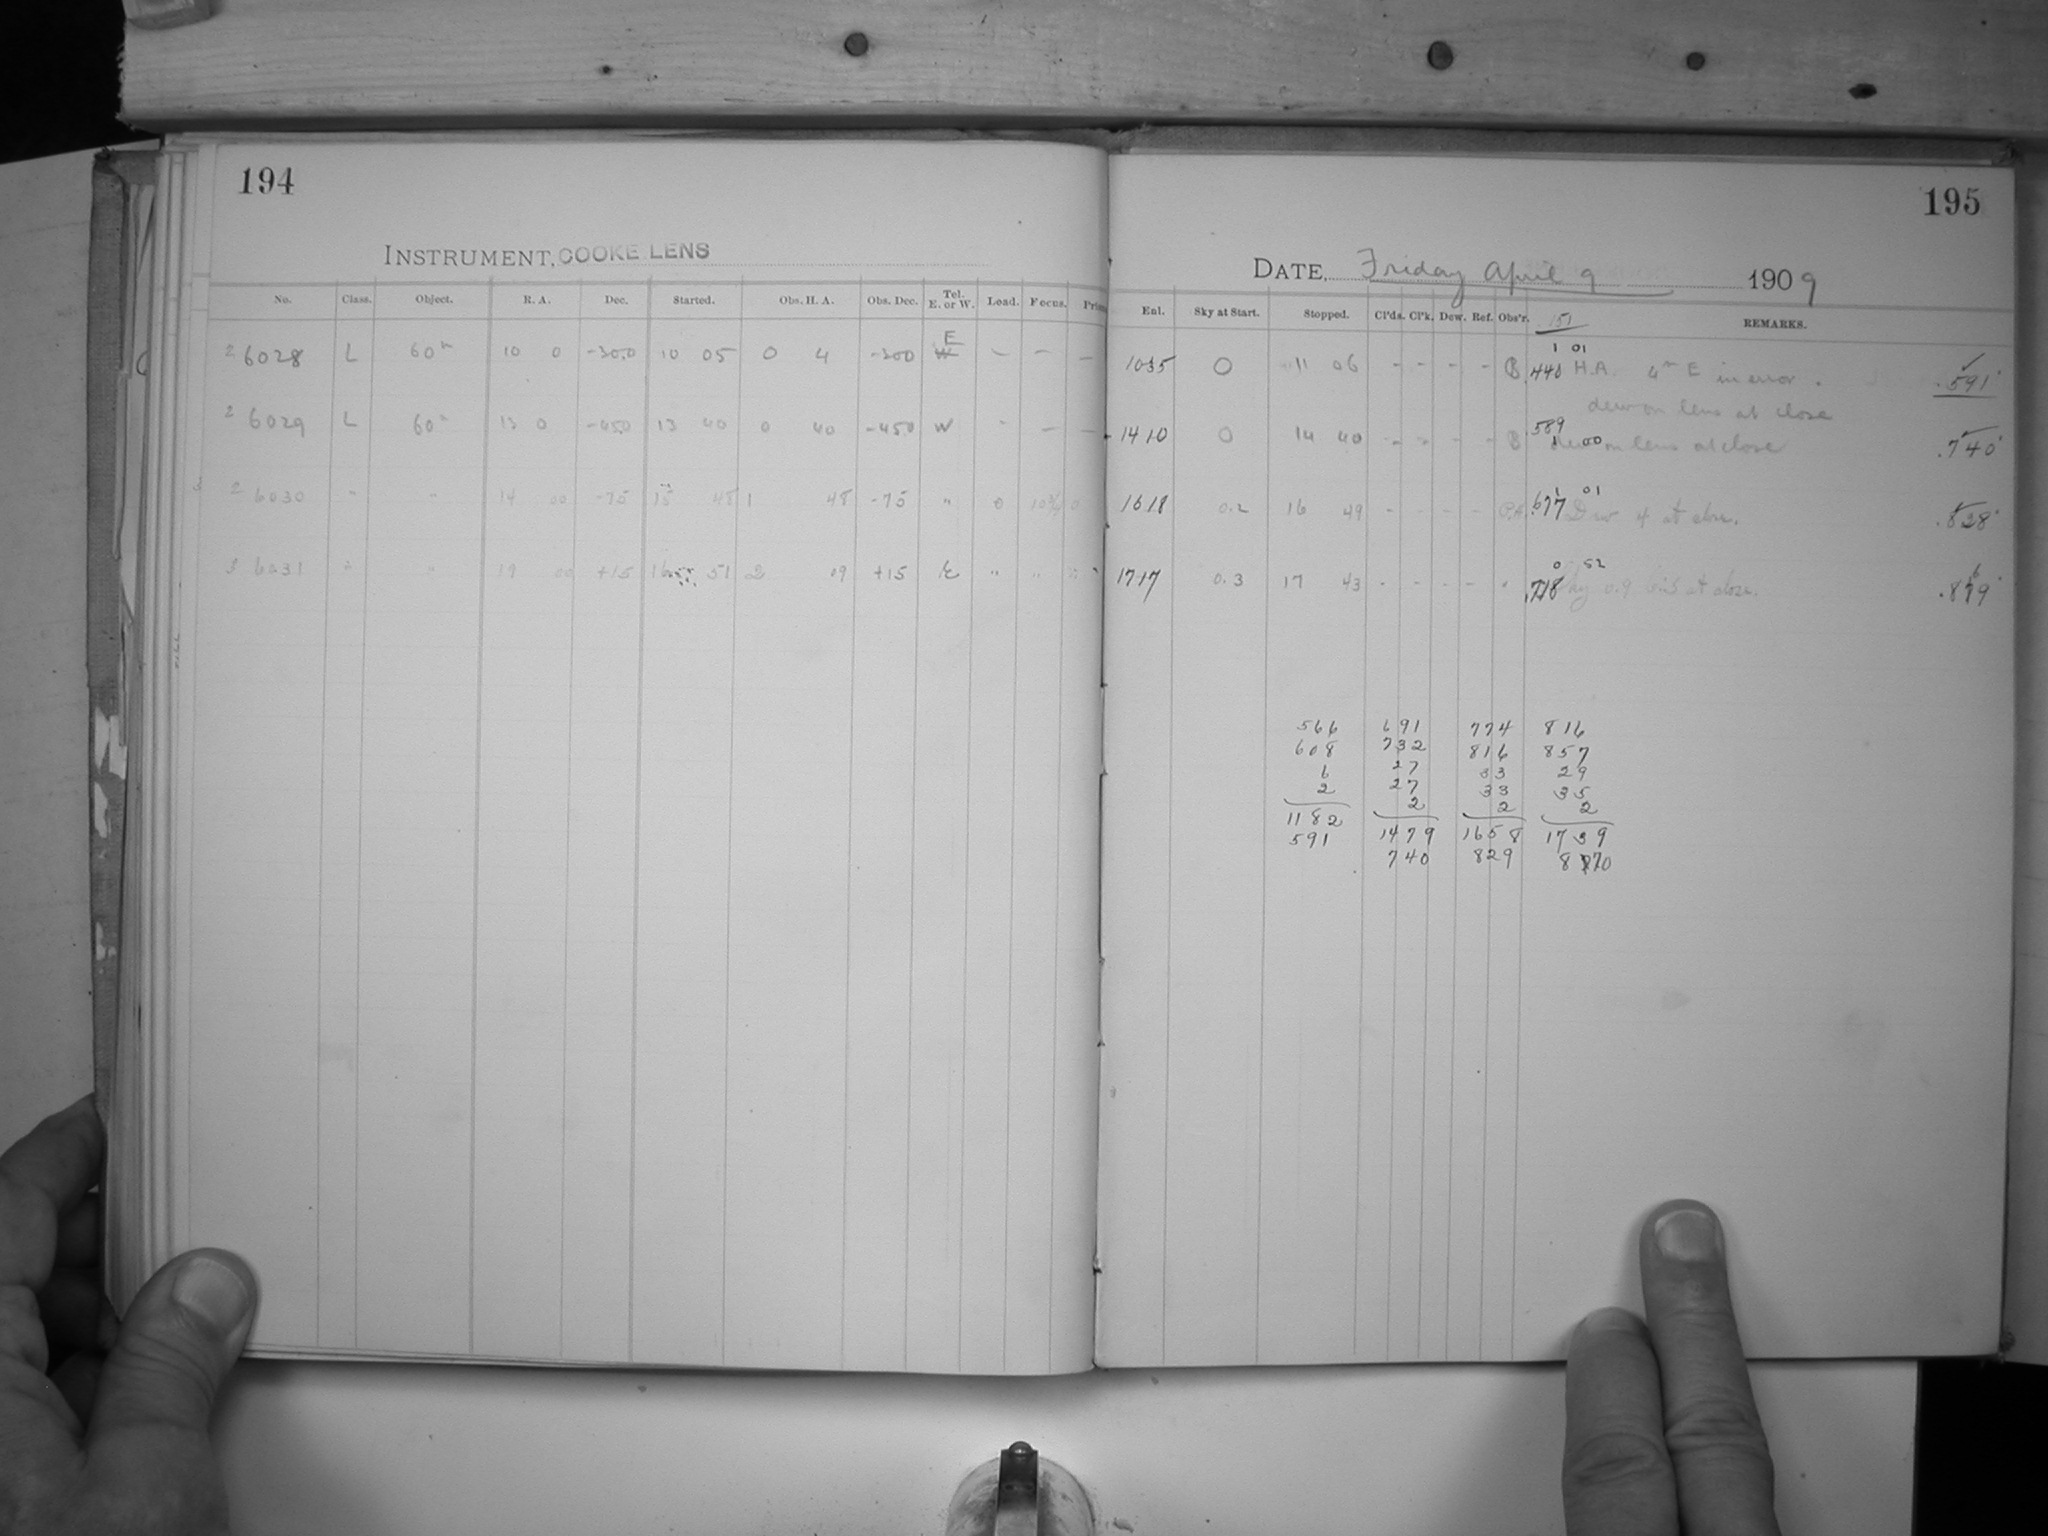 194
INSTRUMENT, COOKE LENS
No. Class. Object. R. A. Dec. Started. Obs. H. A. Obs. Dec. Tel. E. or W. Load. Focus.
E
2 6028 L 60m 10 0 -30.0 10 05 0 4 -300 W - - -
2 6029 L 60m 13 0 -450 13 40 0 40 -450 W - - -
2 6030 " " 14 00 -75 15 48 1 48 -75 " 0
3 6031 " " 19 00 +15 51 2 09 +15 E " " "
195
DATE, Friday April 9 1909
Enl. Sky at Start. Stopped. Cl'ds. Cl'k. Dew. Ref. Obs'r. REMARKS.
151
1 01
1035 0 11 06 - - - - B .440 H.A. 4m E in error. .591
dew on lens at close
.589
1 00
1410 0 14 40 - - - - B dew on lens at close .740
1 01
1618 0.2 16 49 - - - - .677 Dew 4 at close. .828
0 52
1717 0.3 17 43 - - - - " .718 0.9 at close.
566 691 774 816
608 732 816 857
6 27 33 29
2 27 33 35
2 2 2
1182 1479 1658 1739
591 740 829